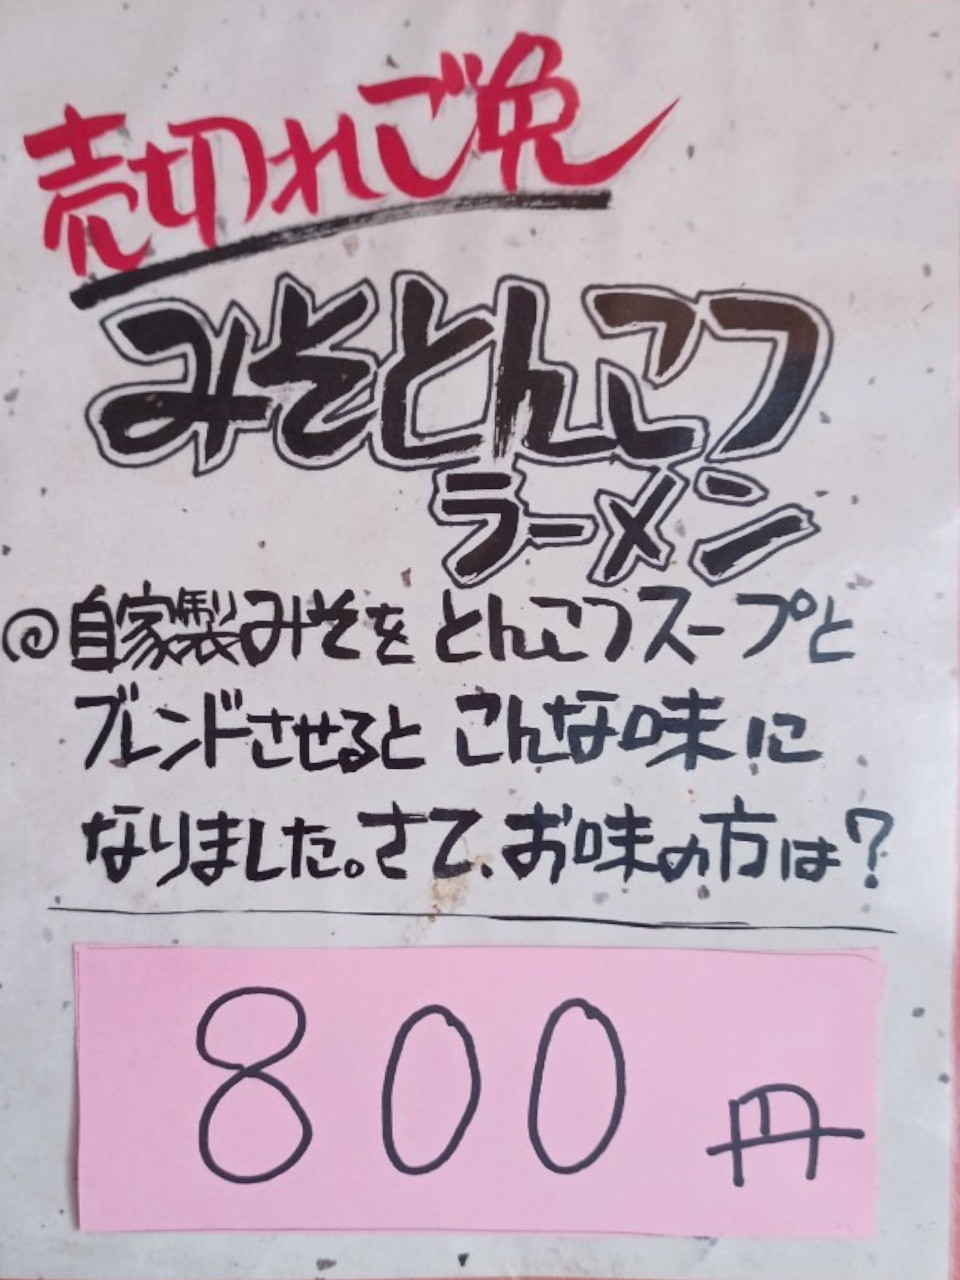 売切れご免
みそとんこつ
ラーメン
◎自家製みそを とんこつスープと
ブレンドさせると こんな味に
なりました。さて、お味の方は?
800円